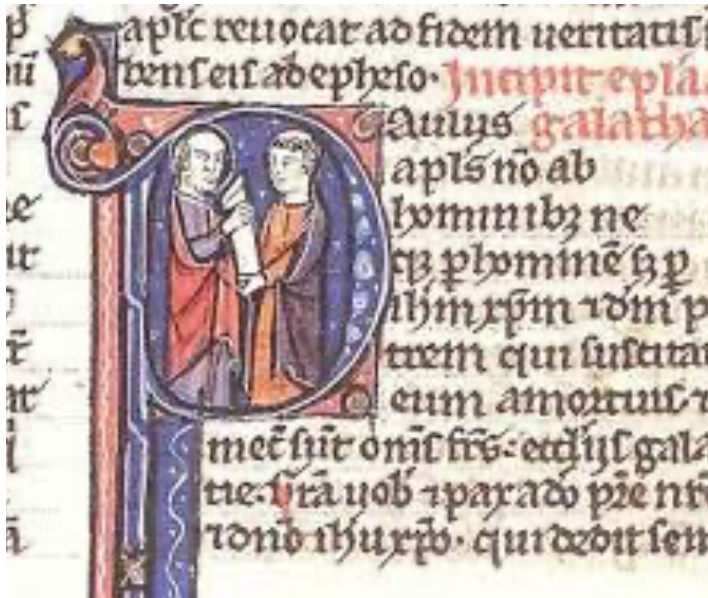 apl'c reuocat ad fidem ueritatis
bens eis ab epheso. Incipit epla a
Paulus galatha
apl's nō ab
hominibȝ ne
qȝ p hominē sȝ p
ihm xpm ⁊ dm̄ p
trem qui suscita
eum a mortuis. ⁊
mec̄ sūt om̄s frs. eccl'ijs gala
tie. gr̄a uob ⁊ pax a do p̄re nr̄o
⁊ dn̄o ihu xp̄o. qui dedit sem